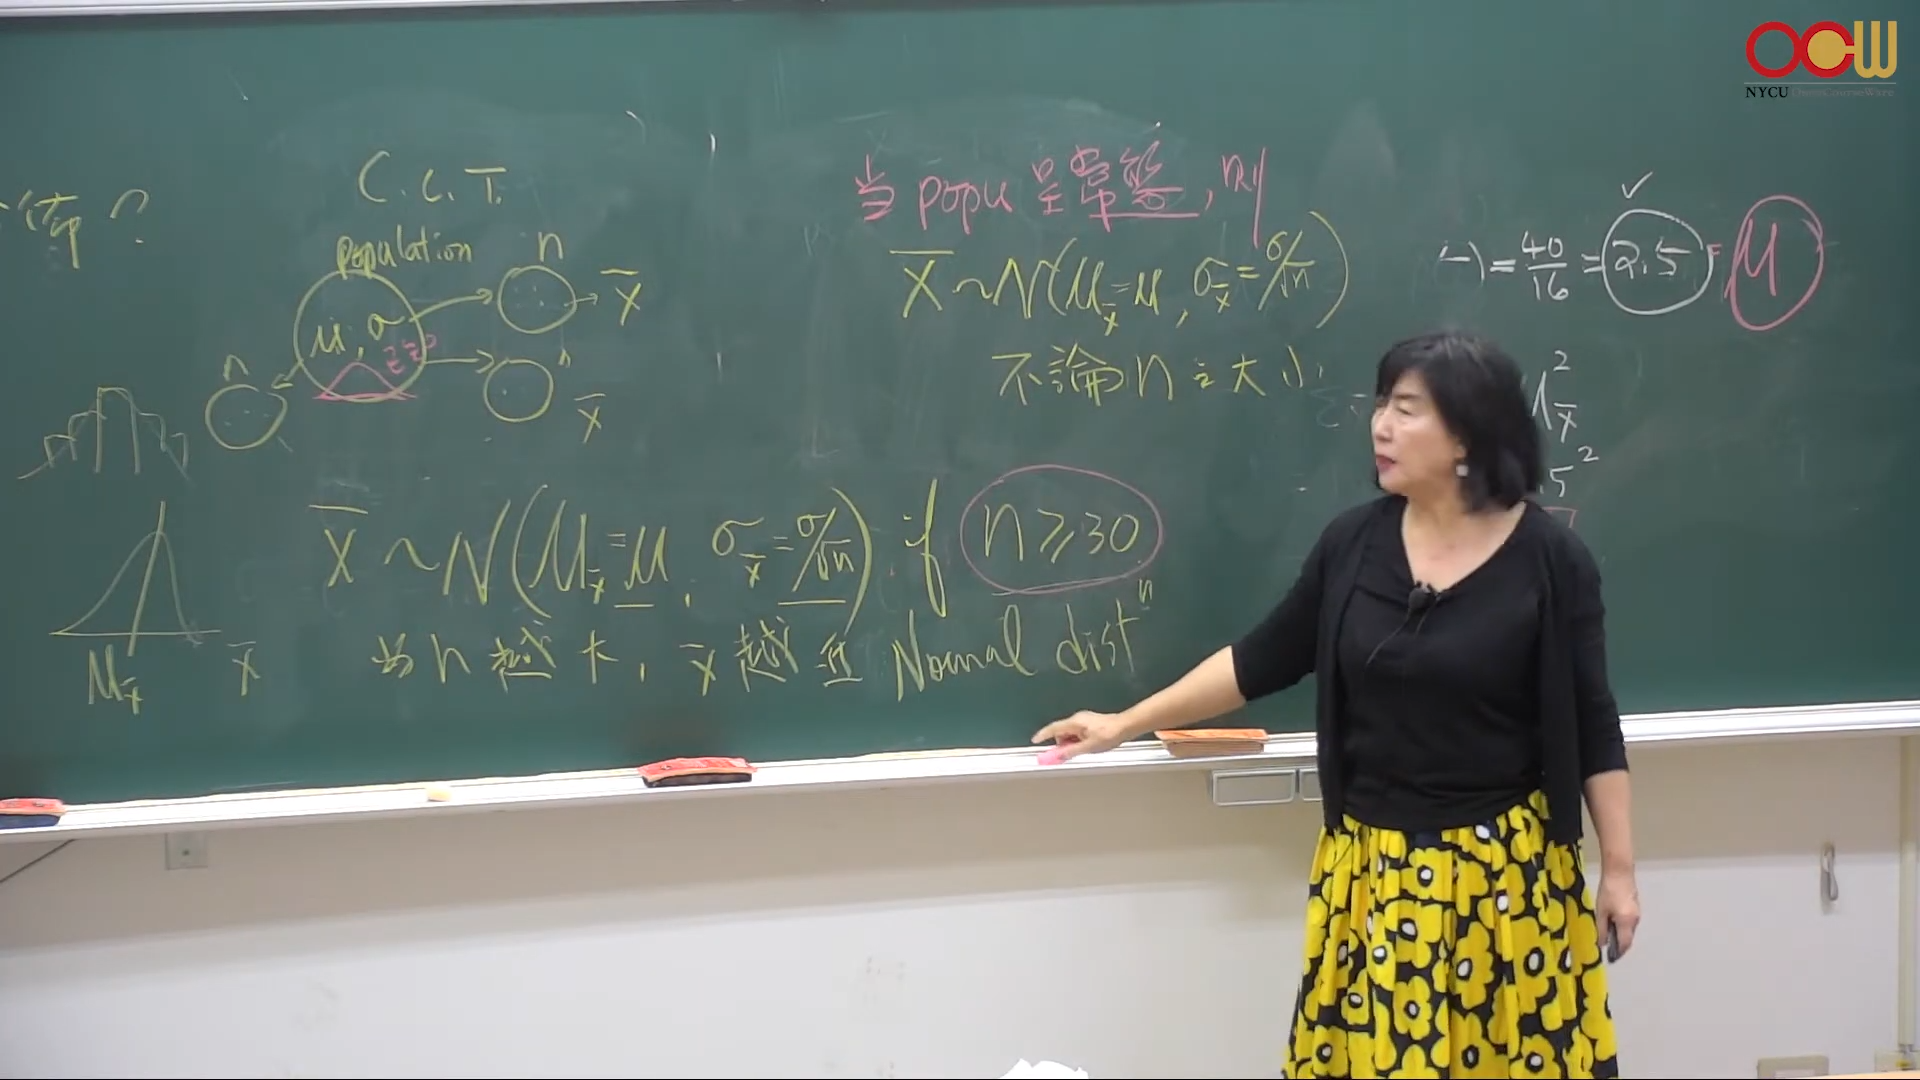 OCW
NYCU OpenCourseWare
C.L.T.
population
n
x̄
μ, σ
n
n
x̄
x̄ ~ N(μx̄=μ, σx̄=σ/√n) if n≥30
当 n 越大, x̄ 越近 Normal distⁿ
μx̄
x̄
当 popu 呈常態, 則
x̄ ~ N(μx̄=μ, σx̄=σ/√n)
不論 n 之大小
= 40/16 = 2.5 = μ
μx̄²
.5²